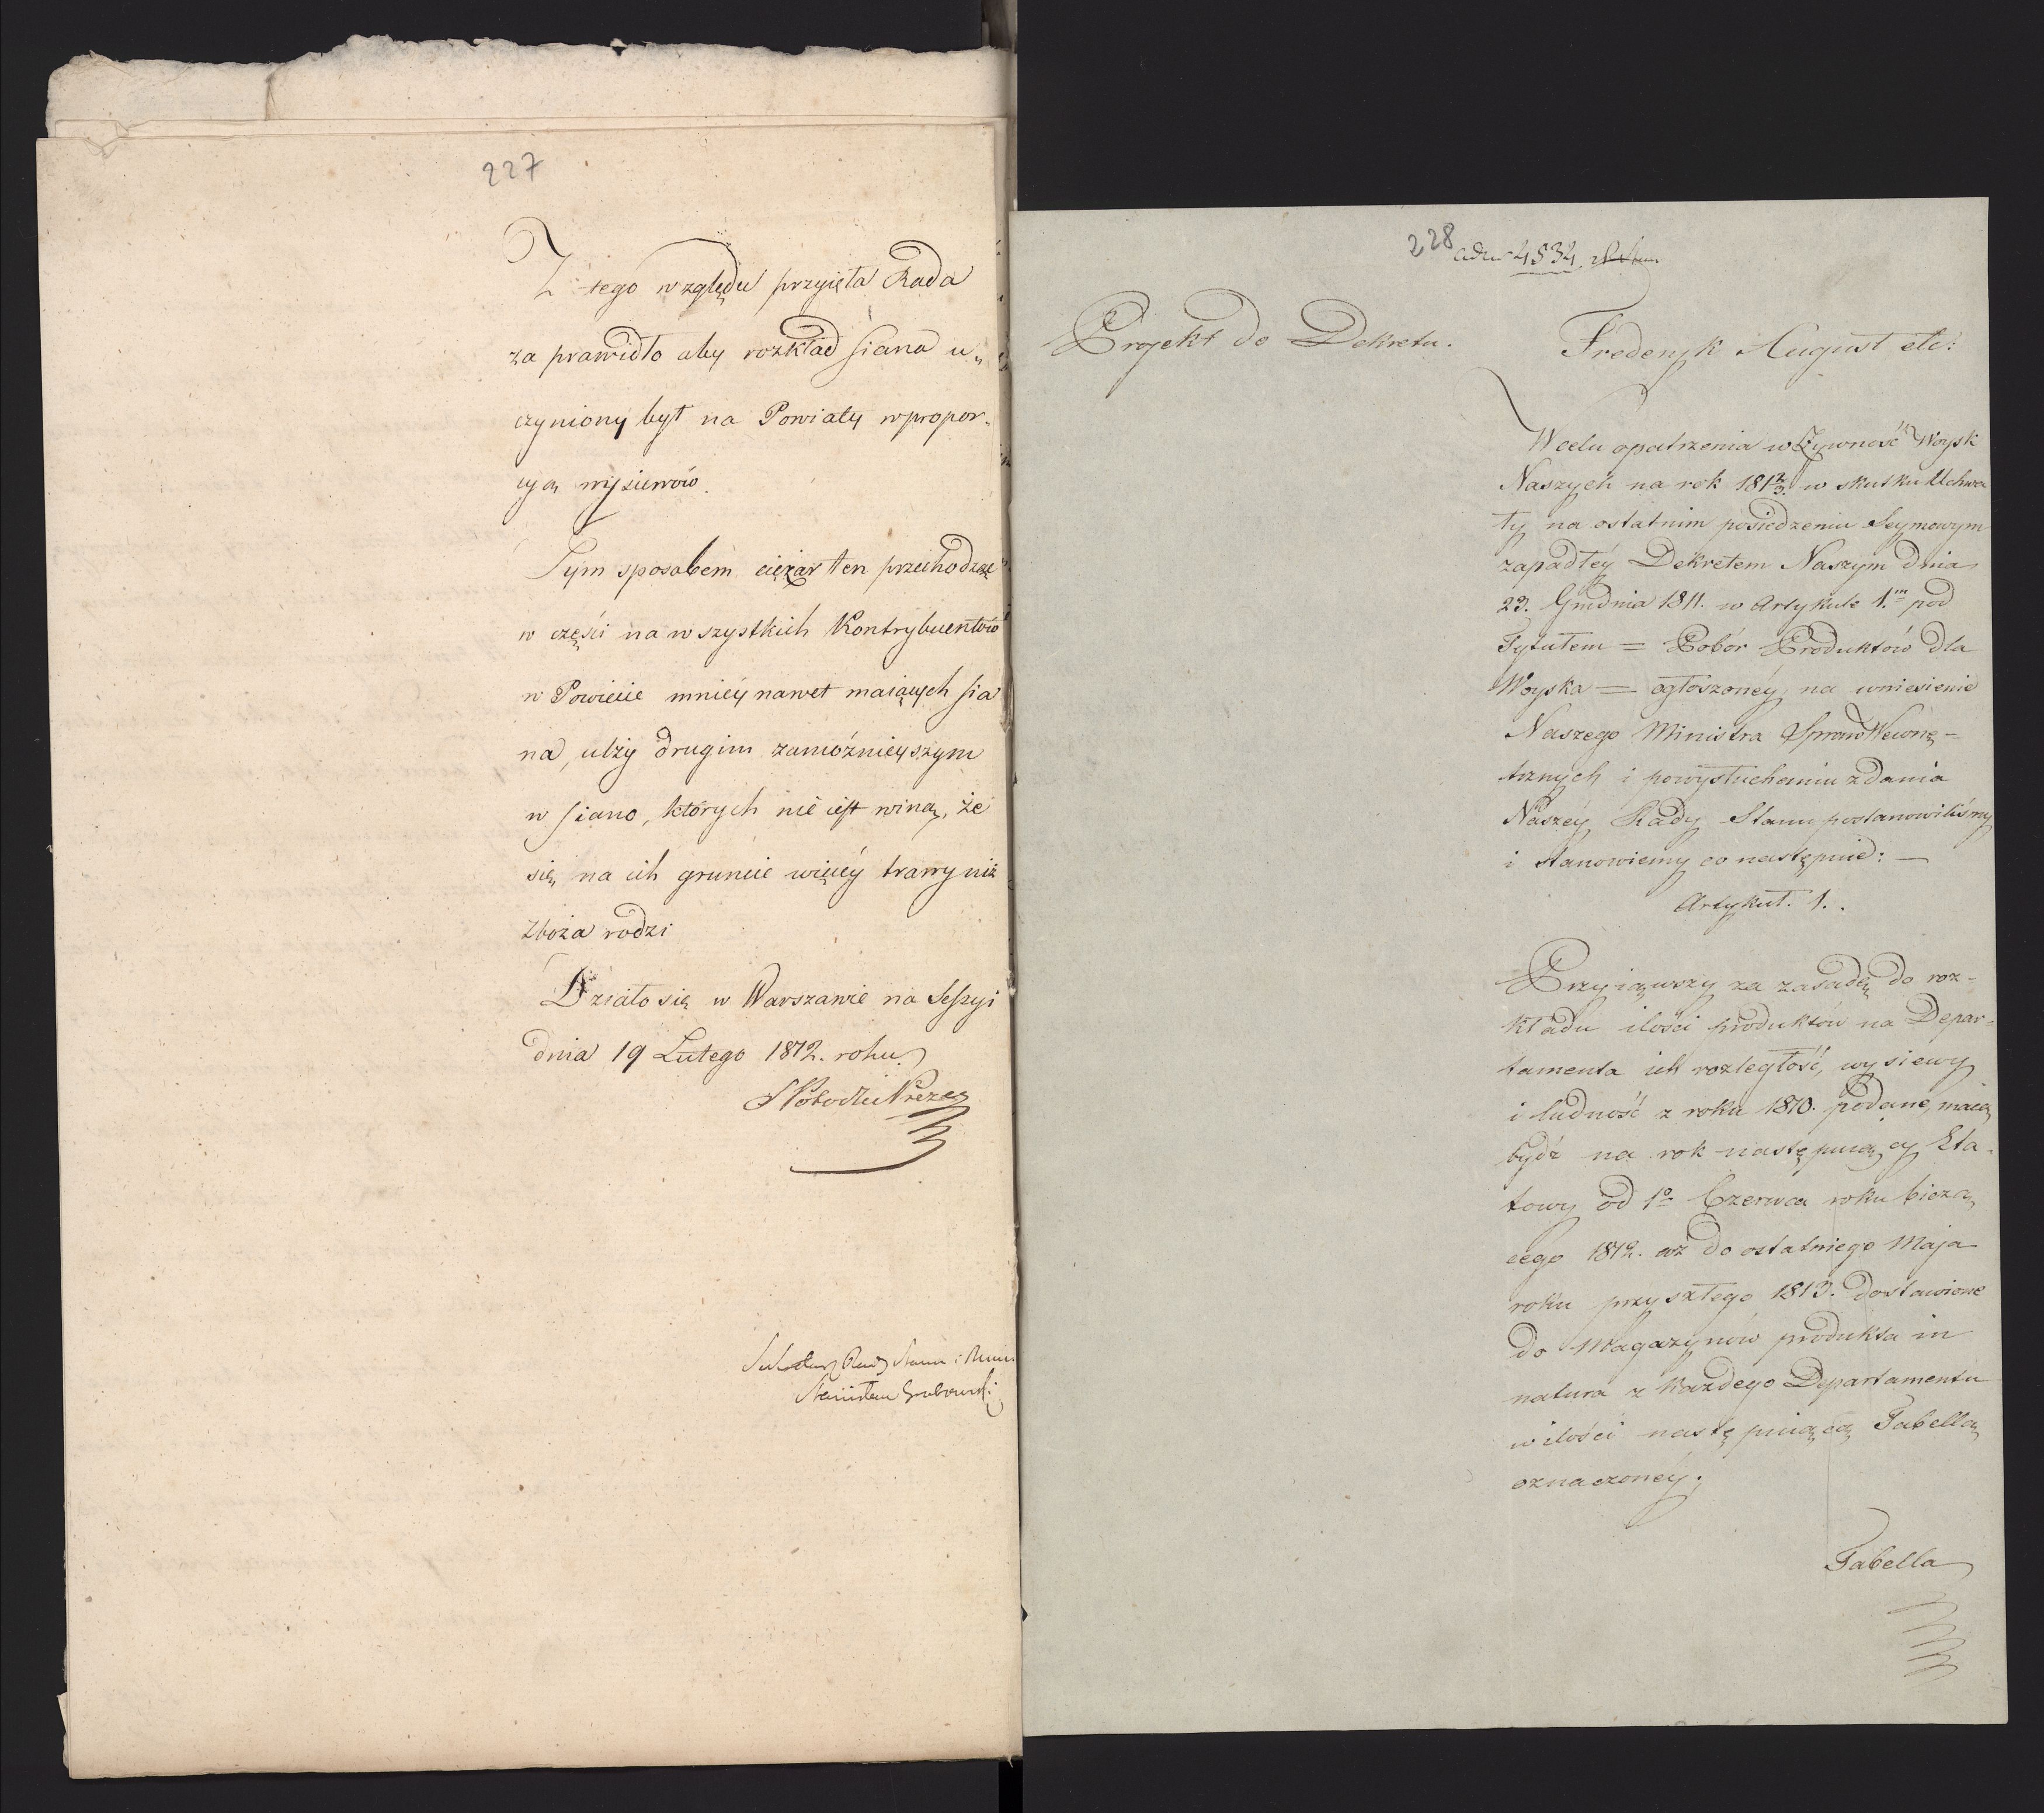 227
Z tego względu przyięła Rada
za prawidło aby rozkład siana u„
czyniony był na Powiaty w propor„
cyą wysiewów.
Tym sposobem ciężar ten przechodząc
w części na wszystkich Kontrybuentów
w Powiecie mniéy nawet maiących sia
na, ulży drugim zamożnieyszym
w siano, których nie iest winą, że
się na ich gruncie więcéy trawy niż
zboża rodzi
Działo się w Warszawie na Sessyi
dnia 19 Lutego 1812. roku
S Potocki Prezes
Sekretarz Rady Stanu i Minis
Stanisław Grabowski
228
ad № 4534
Projekt do Dekretu.
Fryderyk August etc:
W celu opatrzenia w Żywność Woysk
Naszych na rok 1812/3. w skutku Uchwa
ły na ostatnim posiedzeniu Seymowym
zapadłéy Dekretem Naszym dnia
23. Grudnia 1811. w Artykule 1.m pod
Tytułem = Pobór Produktów dla
Woyska = ogłoszonéy, na wniesienie
Naszego Ministra Spraw Wewnę-
trznych i po wysłuchaniu zdania
Naszéy Rady Stanu postanowiliśmy
i stanowiemy co następuie: —
Artykuł. 1.
Przyiąwszy za zasadę do roz-
kładu ilości produktów na Depar-
tamenta ich rozległość, wysiewy
i ludność z roku 1810. podane, maią
bydź na rok następuiący Eta-
towy od 1o Czerwca roku bieżą
cego 1812. aż do ostatniego Maja
roku przyszłego 1813. dostawione
do Magazynów produkta in
natura z każdego Departamentu
w ilości następuiącą Tabellą
oznaczonéy.
Tabella